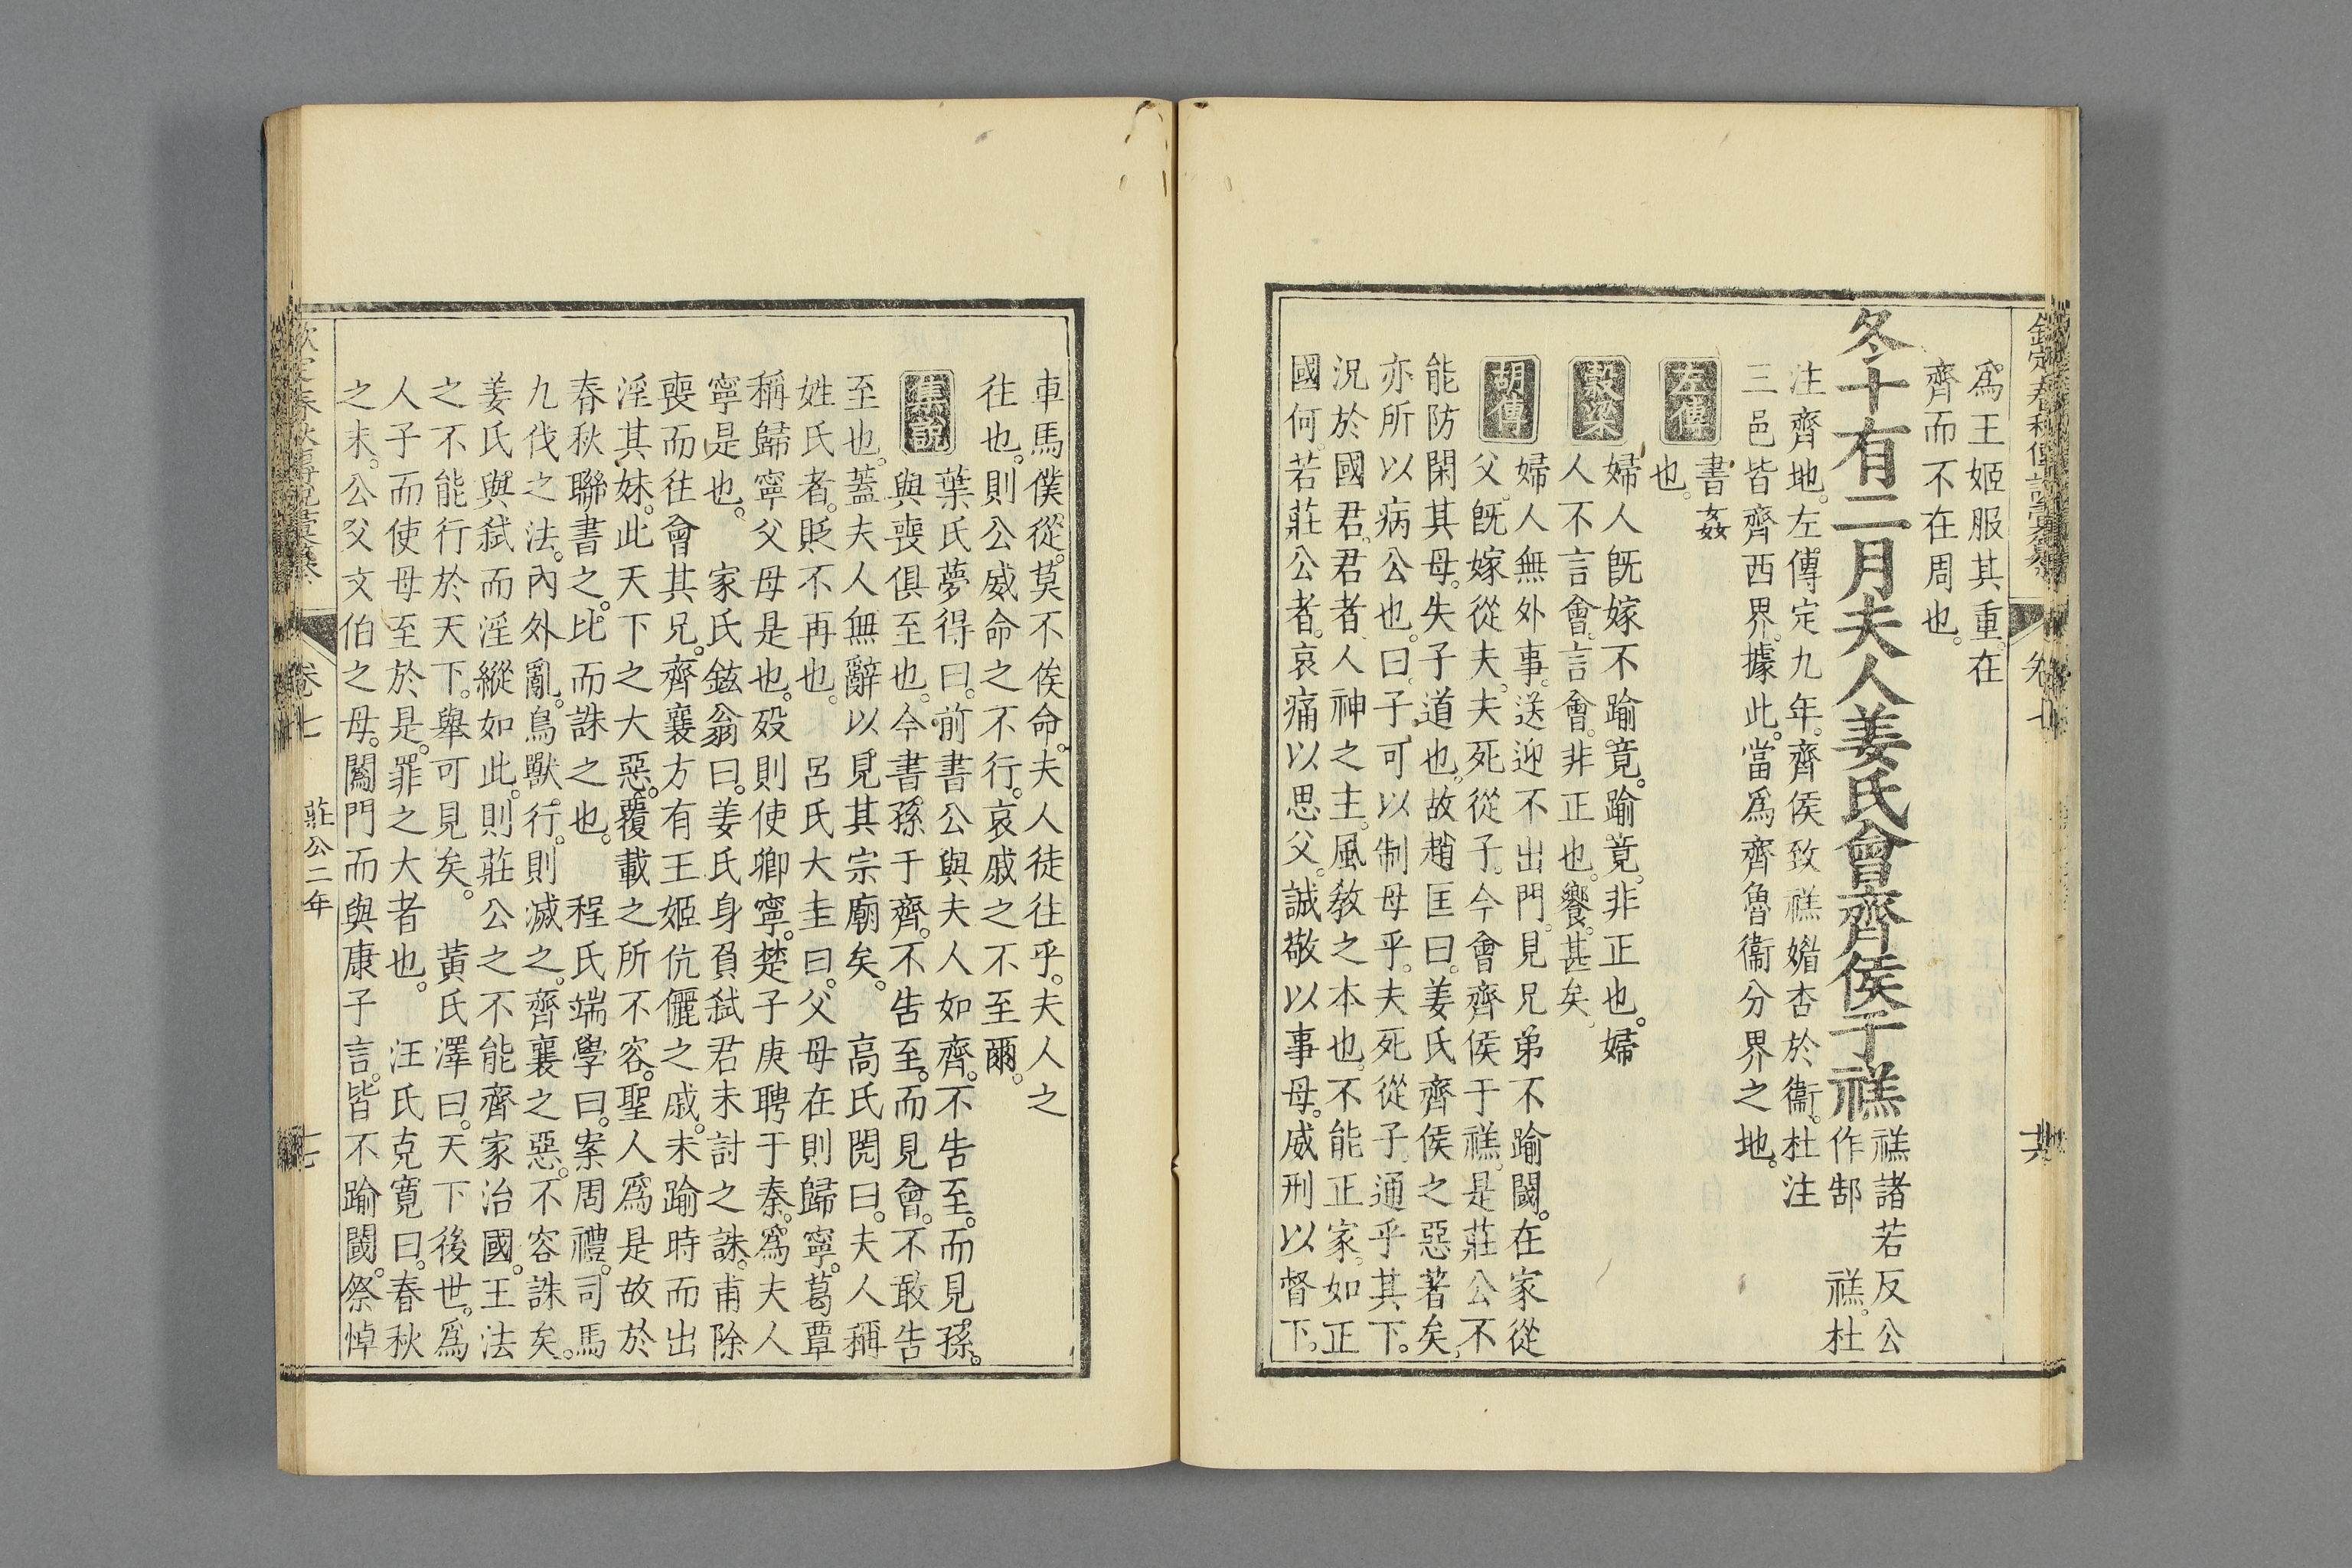 欽定春秋傳說彙纂
卷七
為王姬服其重在
齊而不在周也。
冬十有二月夫人姜氏會齊侯于禚
禚諸若反公
作郜　禚。杜
注齊地。左傳定九年。齊侯致禚媚杏於衞。杜注
三邑皆齊西界。據此。當爲齊魯衞分界之地。
左傳
書姦
也。
穀梁
婦人旣嫁不踰竟。踰竟。非正也。婦
人不言會。言會。非正也。饗。甚矣。
胡傳
婦人無外事。送迎不出門。見兄弟不踰閾。在家從
父。旣嫁從夫。夫死從子。今會齊侯于禚。是莊公不
能防閑其母。失子道也。故趙匡曰。姜氏齊侯之惡著矣。
亦所以病公也。曰。子可以制母乎。夫死從子。通乎其下。
況於國君。君者。人神之主。風敎之本也。不能正家。如正
國何。若莊公者。哀痛以思父。誠敬以事母。威刑以督下。
車馬僕從。莫不俟命。夫人徒往乎。夫人之
往也。則公威命之不行。哀戚之不至爾。
集說
葉氏夢得曰。前書公與夫人如齊。不告至。而見孫。
與喪俱至也。今書孫于齊。不告至。而見會。不敢告
至也。蓋夫人無辭以見其宗廟矣。　高氏閌曰。夫人稱
姓氏者。貶不再也。　呂氏大圭曰。父母在則歸寧。葛覃
稱歸寧父母是也。殁則使卿寧。楚子庚聘于秦。爲夫人
寧是也。　家氏鉉翁曰。姜氏身負弑君未討之誅。甫除
喪而往會其兄。齊襄方有王姬伉儷之戚。未踰時而出
淫其妹。此天下之大惡。覆載之所不容。聖人爲是故於
春秋聯書之。比而誅之也。　程氏端學曰。案周禮。司馬
九伐之法。內外亂。鳥獸行。則滅之。齊襄之惡。不容誅矣。
姜氏與弑而淫縱如此。則莊公之不能齊家治國。王法
之不能行於天下。舉可見矣。　黃氏澤曰。天下後世。爲
人子而使母至於是。罪之大者也。　汪氏克寬曰。春秋
之末。公父文伯之母。闔門而與康子言。皆不踰閾。祭悼
卷七
莊公二年